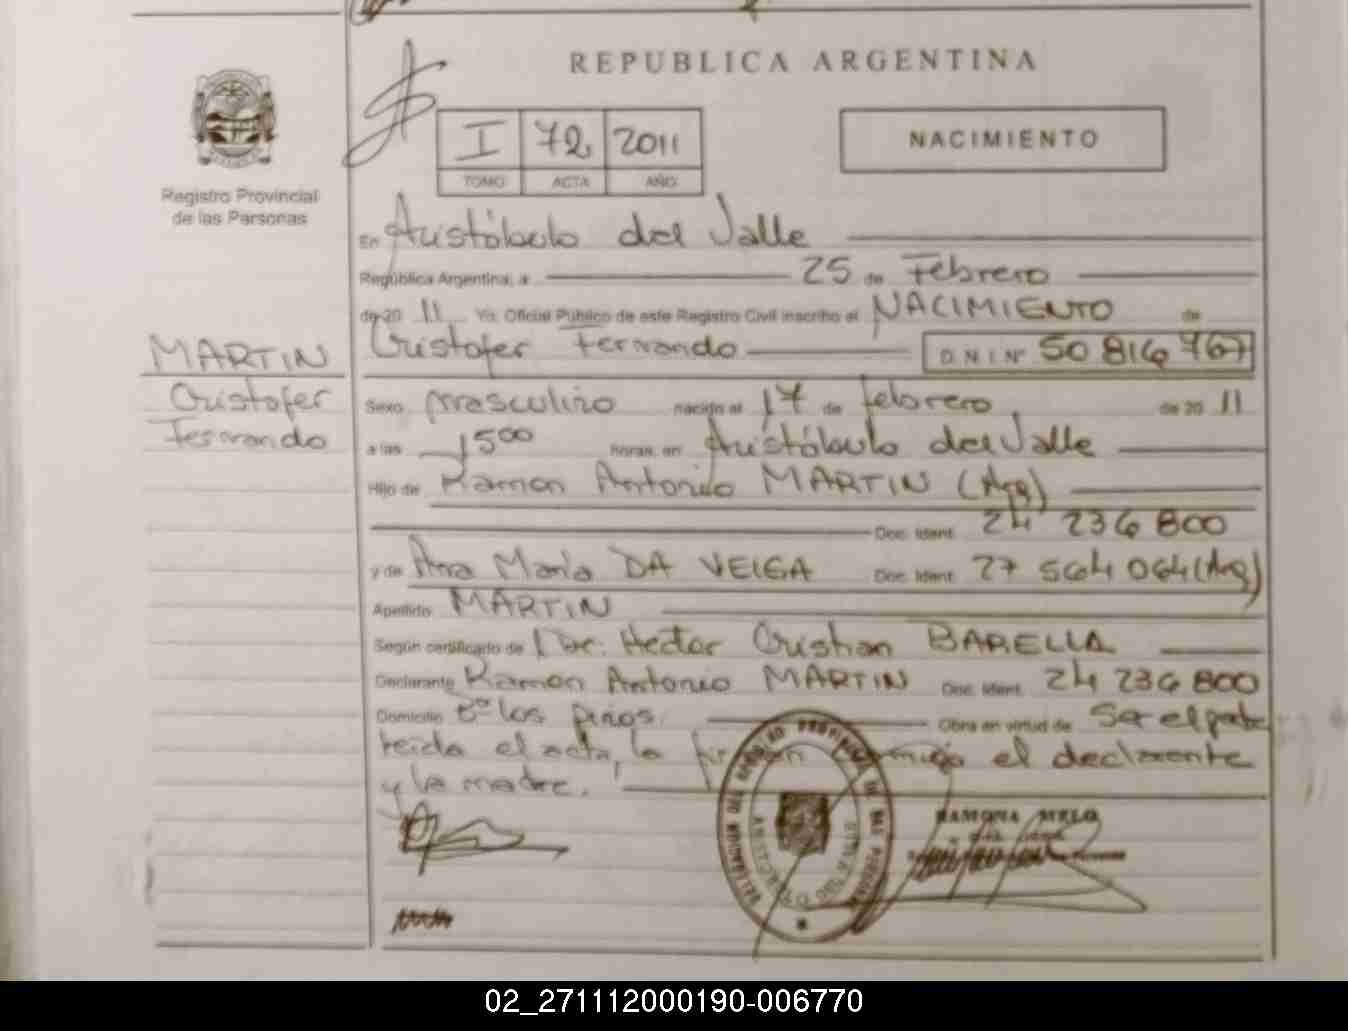 REPUBLICA ARGENTINA
I 72 2011
TOMO ACTA AÑO
NACIMIENTO
Registro Provincial
de las Personas
MARTIN
Cristofer
Fernando
En Aristóbulo del Valle
República Argentina, a 25 de Febrero
de 20 11 Yo, Oficial Público de este Registro Civil inscribo el NACIMIENTO de
Cristofer Fernando D.N.I. Nº 50 816 767
Sexo masculino nacido el 17 de febrero de 20 11
a las 15 00 horas, en Aristóbulo del Valle
Hijo de Ramon Antonio MARTIN (Arg)
Doc. Ident. 24 236 800
y de Ana María DA VEIGA Doc. Ident. 27 564 064 (Arg)
Apellido MARTIN
Según certificado de Dr. Hector Cristian BARELLA
Declarante Ramon Antonio MARTIN Doc. Ident. 24 236 800
Domicilio Bº los pinos. Obra en virtud de Ser el padre
leida el acta, la firman conmigo el declarante
y la madre.
RAMONA MELO
02_271112000190-006770